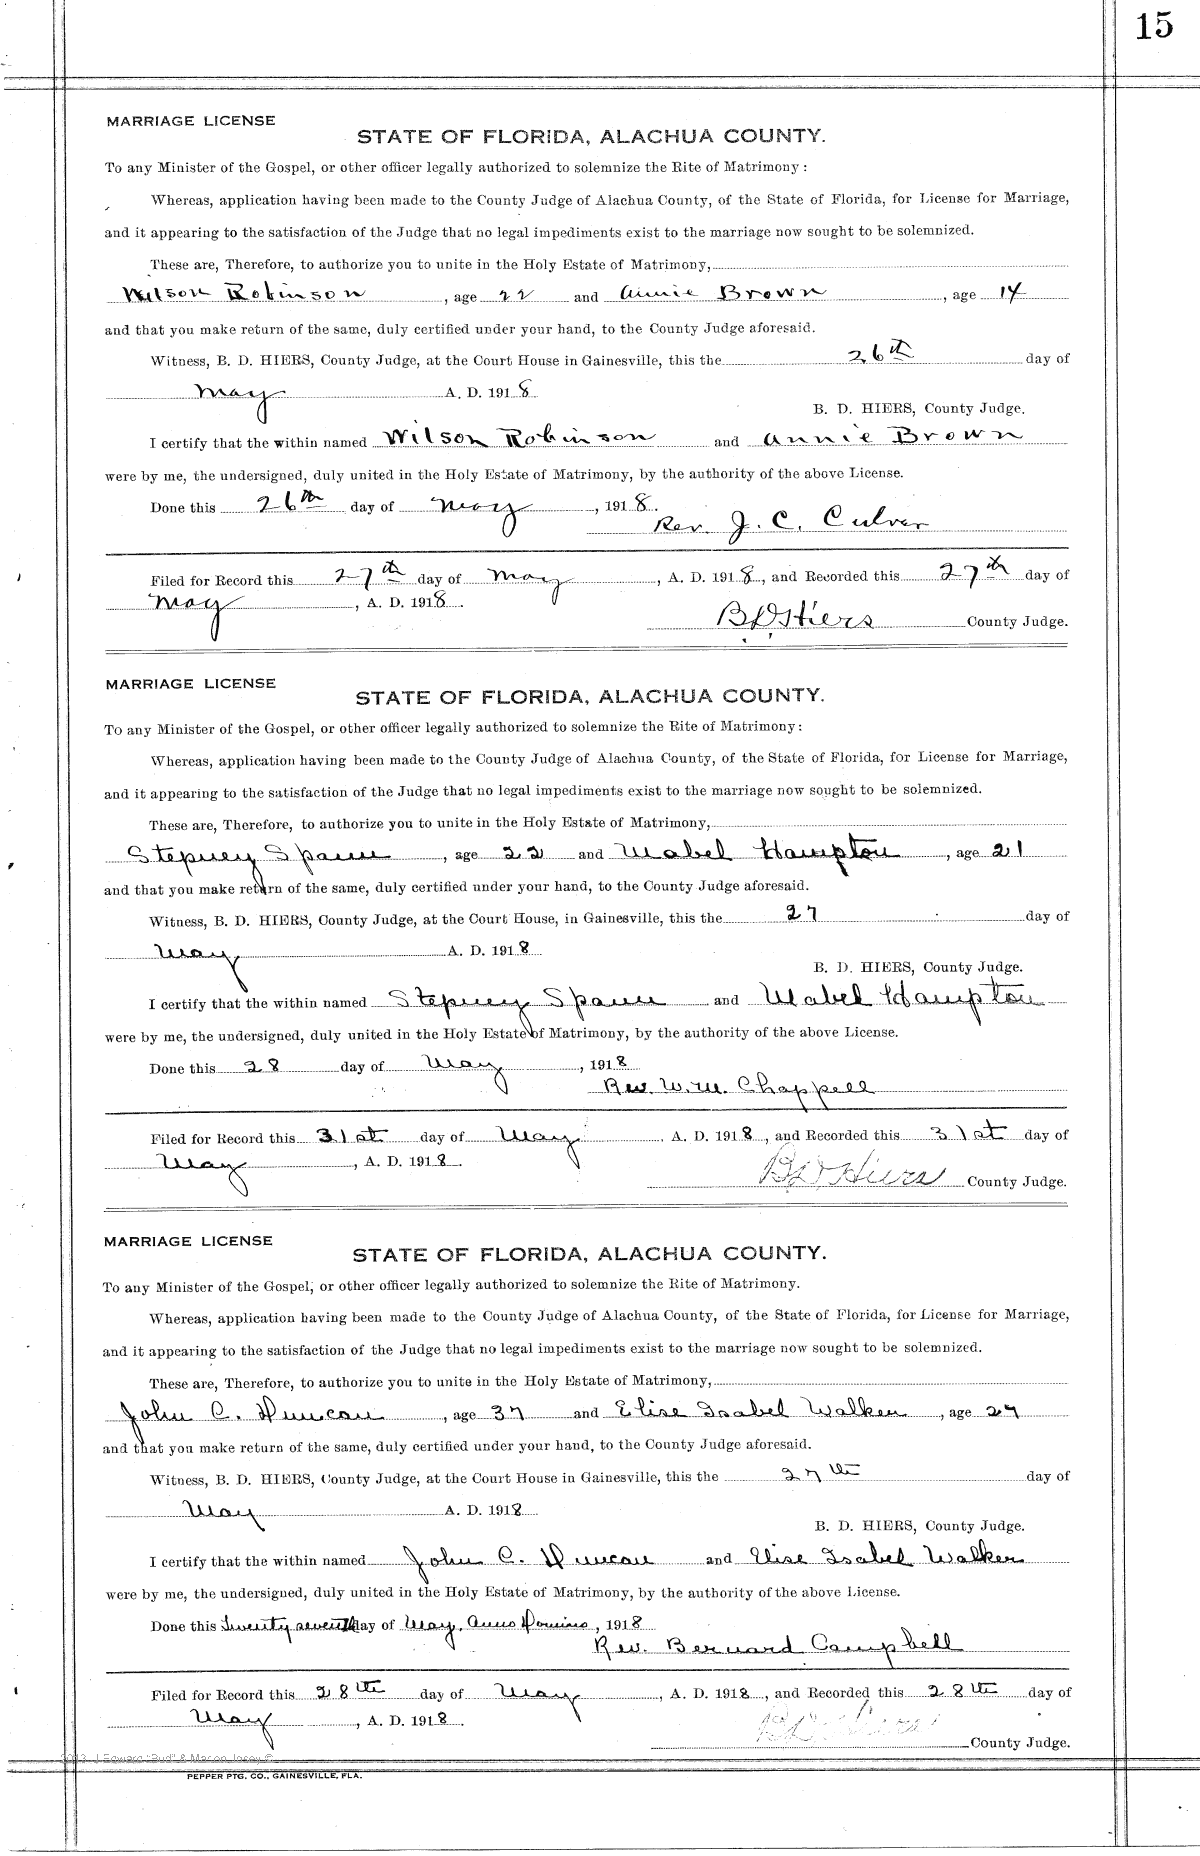 15
MARRIAGE LICENSE
STATE OF FLORIDA, ALACHUA COUNTY.
To any Minister of the Gospel, or other officer legally authorized to solemnize the Rite of Matrimony:
Whereas, application having been made to the County Judge of Alachua County, of the State of Florida, for License for Marriage,
and it appearing to the satisfaction of the Judge that no legal impediments exist to the marriage now sought to be solemnized.
These are, Therefore, to authorize you to unite in the Holy Estate of Matrimony,
Wilson Robinson, age 22 and Annie Brown, age 14
and that you make return of the same, duly certified under your hand, to the County Judge aforesaid.
Witness, B. D. HIERS, County Judge, at the Court House in Gainesville, this the 26th day of
May A. D. 1918
B. D. HIERS, County Judge.
I certify that the within named Wilson Robinson and Annie Brown
were by me, the undersigned, duly united in the Holy Estate of Matrimony, by the authority of the above License.
Done this 26th day of May, 1918.
Rev. J. C. Culver
Filed for Record this 27th day of May, A. D. 1918, and Recorded this 27th day of
May, A. D. 1918.
B D Hiers County Judge.
MARRIAGE LICENSE
STATE OF FLORIDA, ALACHUA COUNTY.
To any Minister of the Gospel, or other officer legally authorized to solemnize the Rite of Matrimony:
Whereas, application having been made to the County Judge of Alachua County, of the State of Florida, for License for Marriage,
and it appearing to the satisfaction of the Judge that no legal impediments exist to the marriage now sought to be solemnized.
These are, Therefore, to authorize you to unite in the Holy Estate of Matrimony,
Stepney Spann, age 22 and Mabel Hampton, age 21
and that you make return of the same, duly certified under your hand, to the County Judge aforesaid.
Witness, B. D. HIERS, County Judge, at the Court House, in Gainesville, this the 27 day of
May A. D. 1918
B. D. HIERS, County Judge.
I certify that the within named Stepney Spann and Mabel Hampton
were by me, the undersigned, duly united in the Holy Estate of Matrimony, by the authority of the above License.
Done this 28 day of May, 1918
Rev. W. M. Chappell
Filed for Record this 31st day of May. A. D. 1918, and Recorded this 31st day of
May, A. D. 1918.
B D Hiers County Judge.
MARRIAGE LICENSE
STATE OF FLORIDA, ALACHUA COUNTY.
To any Minister of the Gospel, or other officer legally authorized to solemnize the Rite of Matrimony.
Whereas, application having been made to the County Judge of Alachua County, of the State of Florida, for License for Marriage,
and it appearing to the satisfaction of the Judge that no legal impediments exist to the marriage now sought to be solemnized.
These are, Therefore, to authorize you to unite in the Holy Estate of Matrimony,
John C. Duncan, age 37 and Elise Isabel Walker, age 27
and that you make return of the same, duly certified under your hand, to the County Judge aforesaid.
Witness, B. D. HIERS, County Judge, at the Court House in Gainesville, this the 27th day of
May A. D. 1918
B. D. HIERS, County Judge.
I certify that the within named John C. Duncan and Elise Isabel Walker
were by me, the undersigned, duly united in the Holy Estate of Matrimony, by the authority of the above License.
Done this Twenty seventh day of May, Anno Domino, 1918
Rev. Bernard Campbell
Filed for Record this 28th day of May, A. D. 1918, and Recorded this 28th day of
May, A. D. 1918.
B D Hiers County Judge.
PEPPER PTG. CO., GAINESVILLE, FLA.